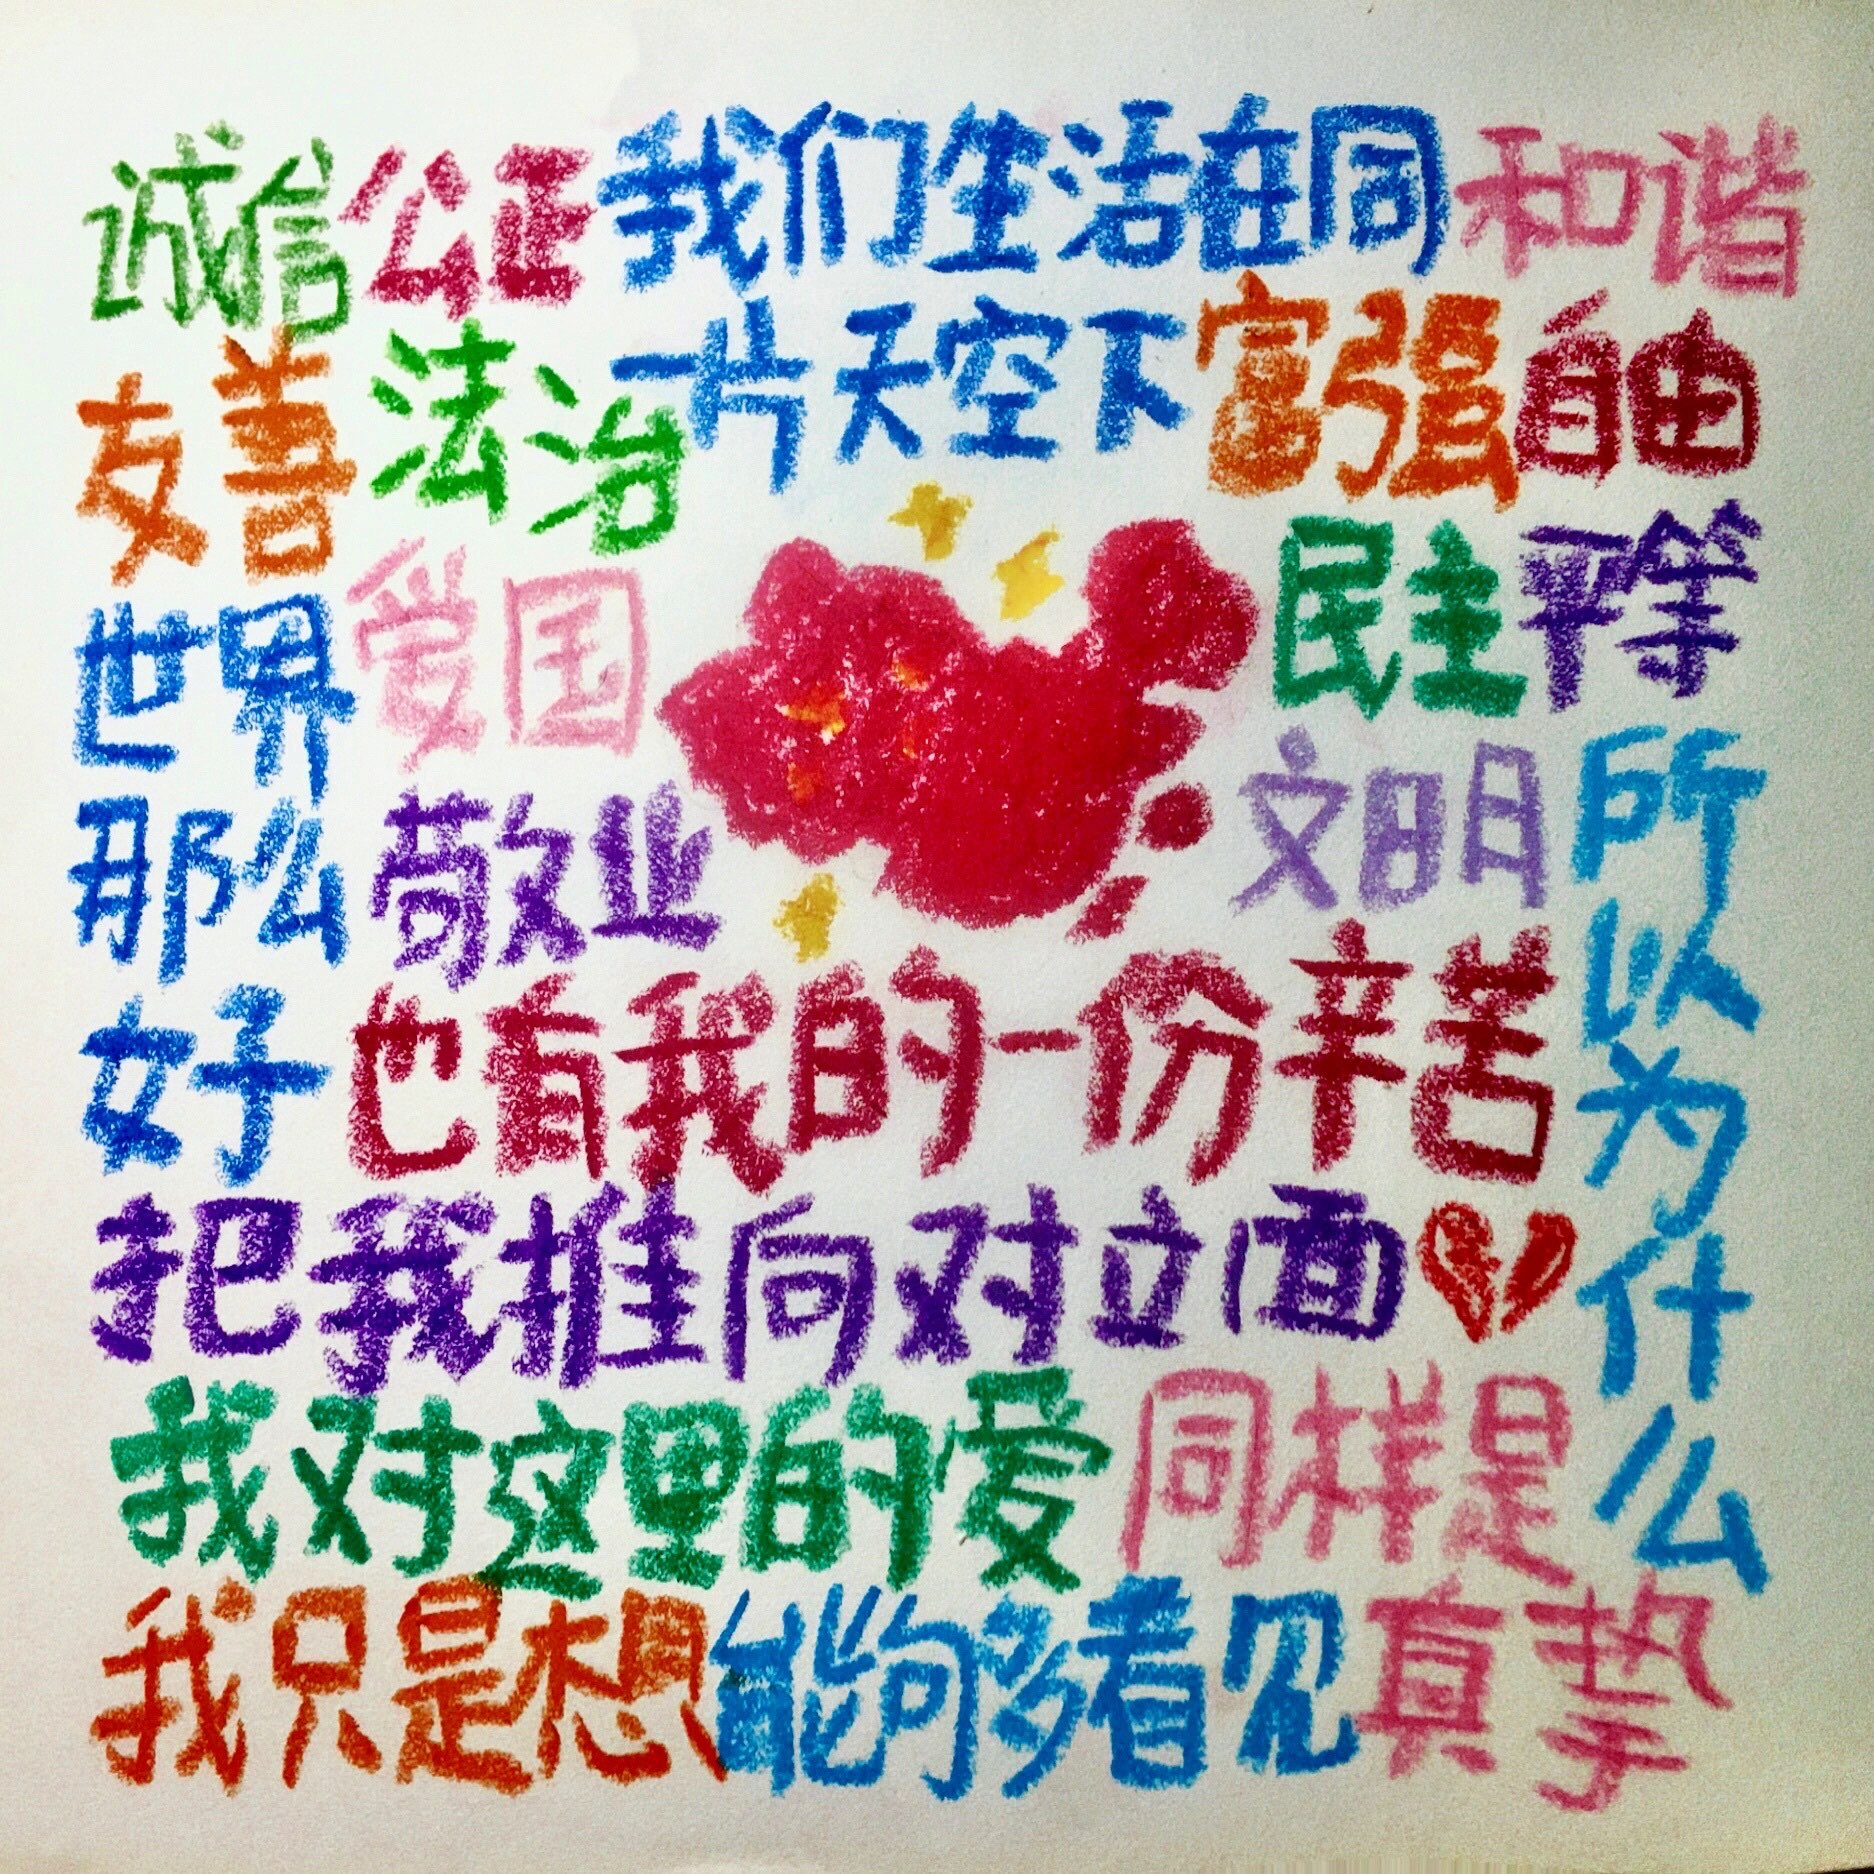 诚信 公正 我们生活在同 和谐
友善 法治 一片天空下 富强 自由
世界 爱国 民主 平等
那么 敬业 文明
好 也有我的一份辛苦
所以为什么
把我推向对立面
我对这里的爱 同样是
我只是想能够多看见 真挚